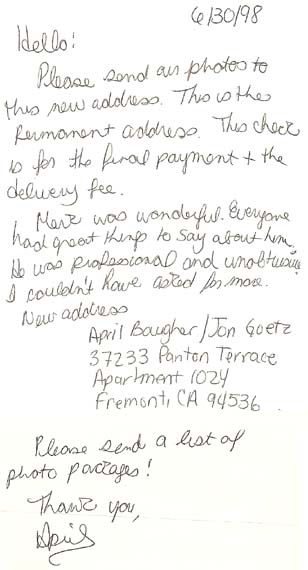 6/30/98
Hello!
Please send our photos to
this new address. This is the
Permanent address. This check
is for the final payment + the
delivery fee.
Marc was wonderful. Everyone
had great things to say about him,
He was professional and unobtrusive
I couldn't have asked for more.
New address
April Baugher/Jon Goetz
37233 Panton Terrace
Apartment 1024
Fremont, CA 94536
Please send a list of
photo packages!
Thank you,
April